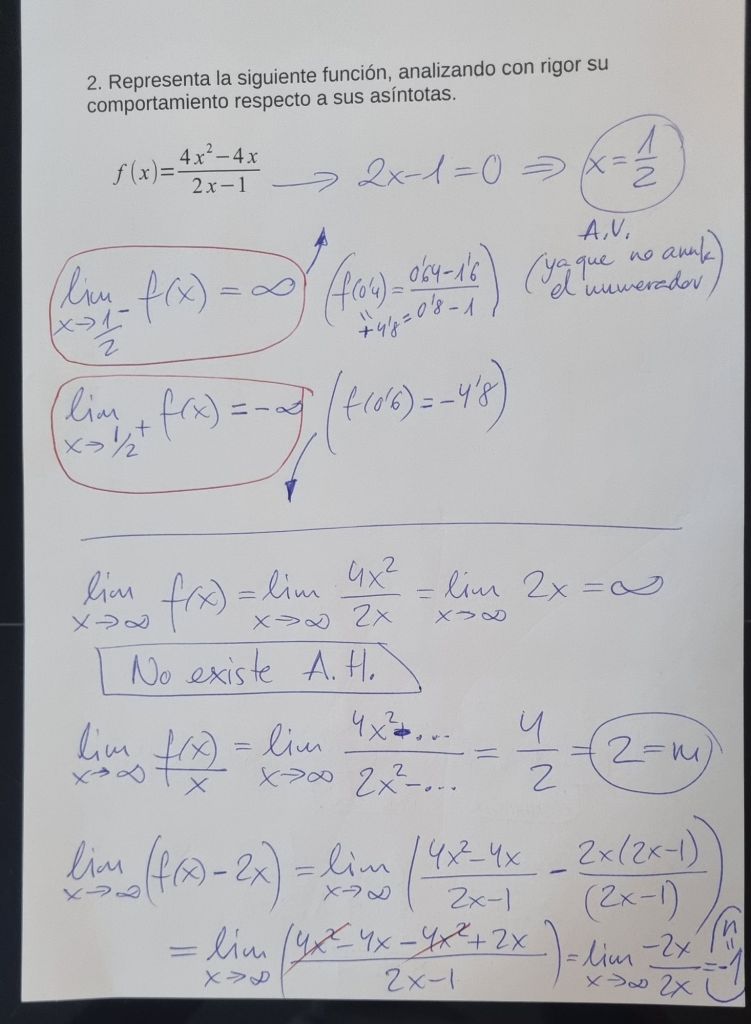 2. Representa la siguiente función, analizando con rigor su
comportamiento respecto a sus asíntotas.
f(x)=(4x²−4x)/(2x−1) → 2x−1=0 ⇒ x=1/2
A.V.
(ya que no anula
el numerador)
lim x→1/2⁻ f(x) = ∞ (f(0'4) = (0'64−1'6)/(0'8−1) = +4'8)
lim x→1/2⁺ f(x) = −∞ (f(0'6) = −4'8)
lim x→∞ f(x) = lim x→∞ 4x²/2x = lim x→∞ 2x = ∞
No existe A.H.
lim x→∞ f(x)/x = lim x→∞ (4x²-...)/(2x²-...) = 4/2 = 2 = m
lim x→∞ (f(x) − 2x) = lim x→∞ ((4x²−4x)/(2x−1) − 2x(2x−1)/(2x−1))
= lim x→∞ ((4x²−4x−4x²+2x)/(2x−1)) = lim x→∞ −2x/2x = −1 = n